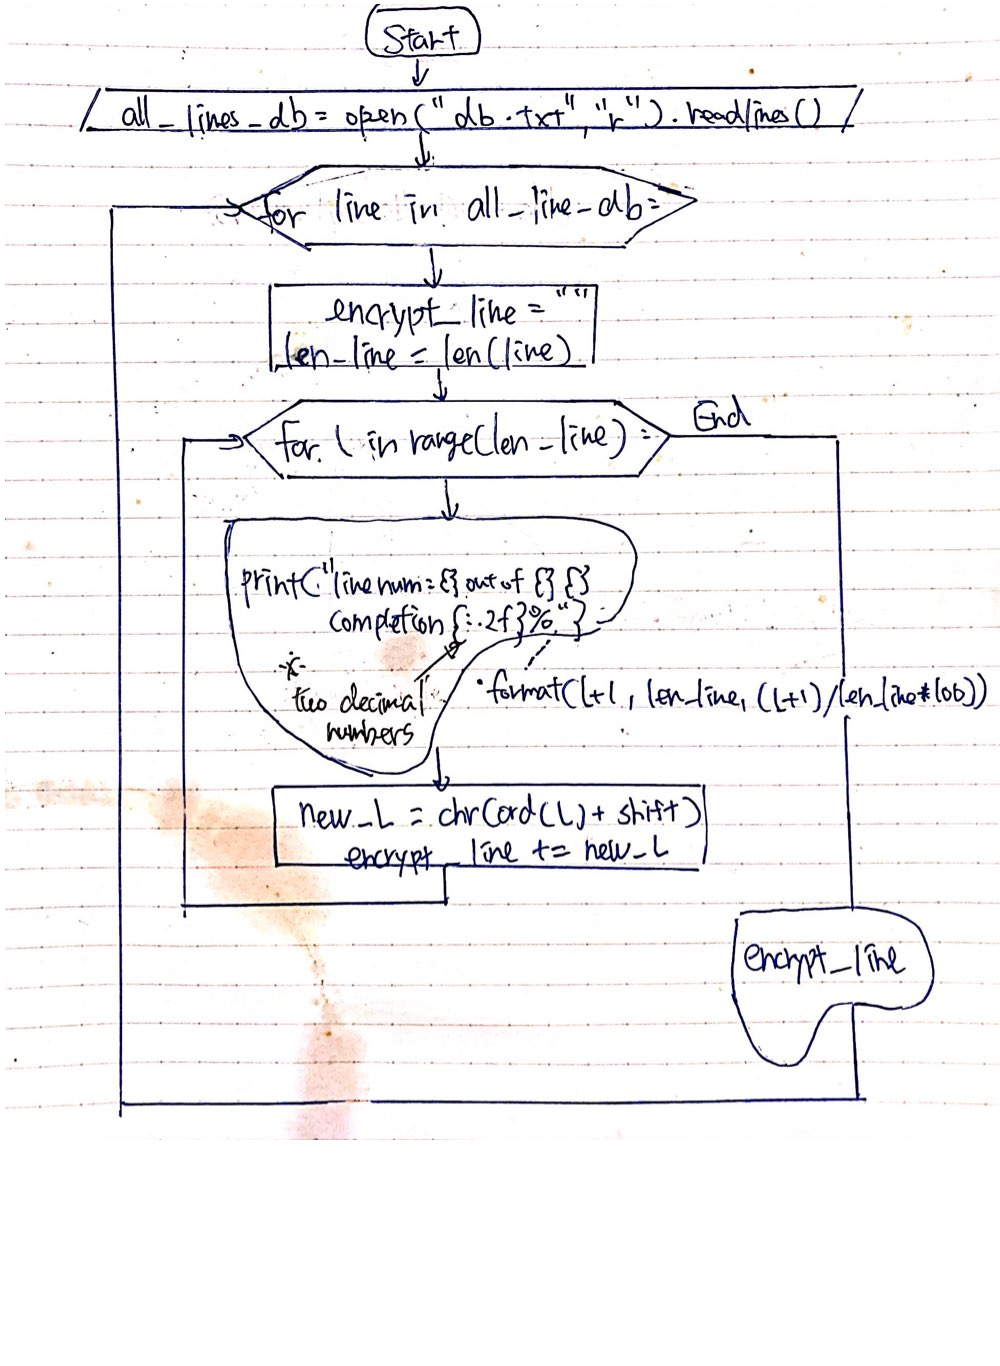 Start
all_lines_db = open("db.txt", "r").readlines()
for line in all_line_db:
encrypt_line = ""
len_line = len(line)
for l in range(len_line):
End
print("line num={} out of {} {}
completion {:.2f}%"}
*
two decimal
numbers
.format(l+1, len_line, (l+1)/len_line*100))
new_L = chr(ord(L) + shift)
encrypt_line += new_L
encrypt_line